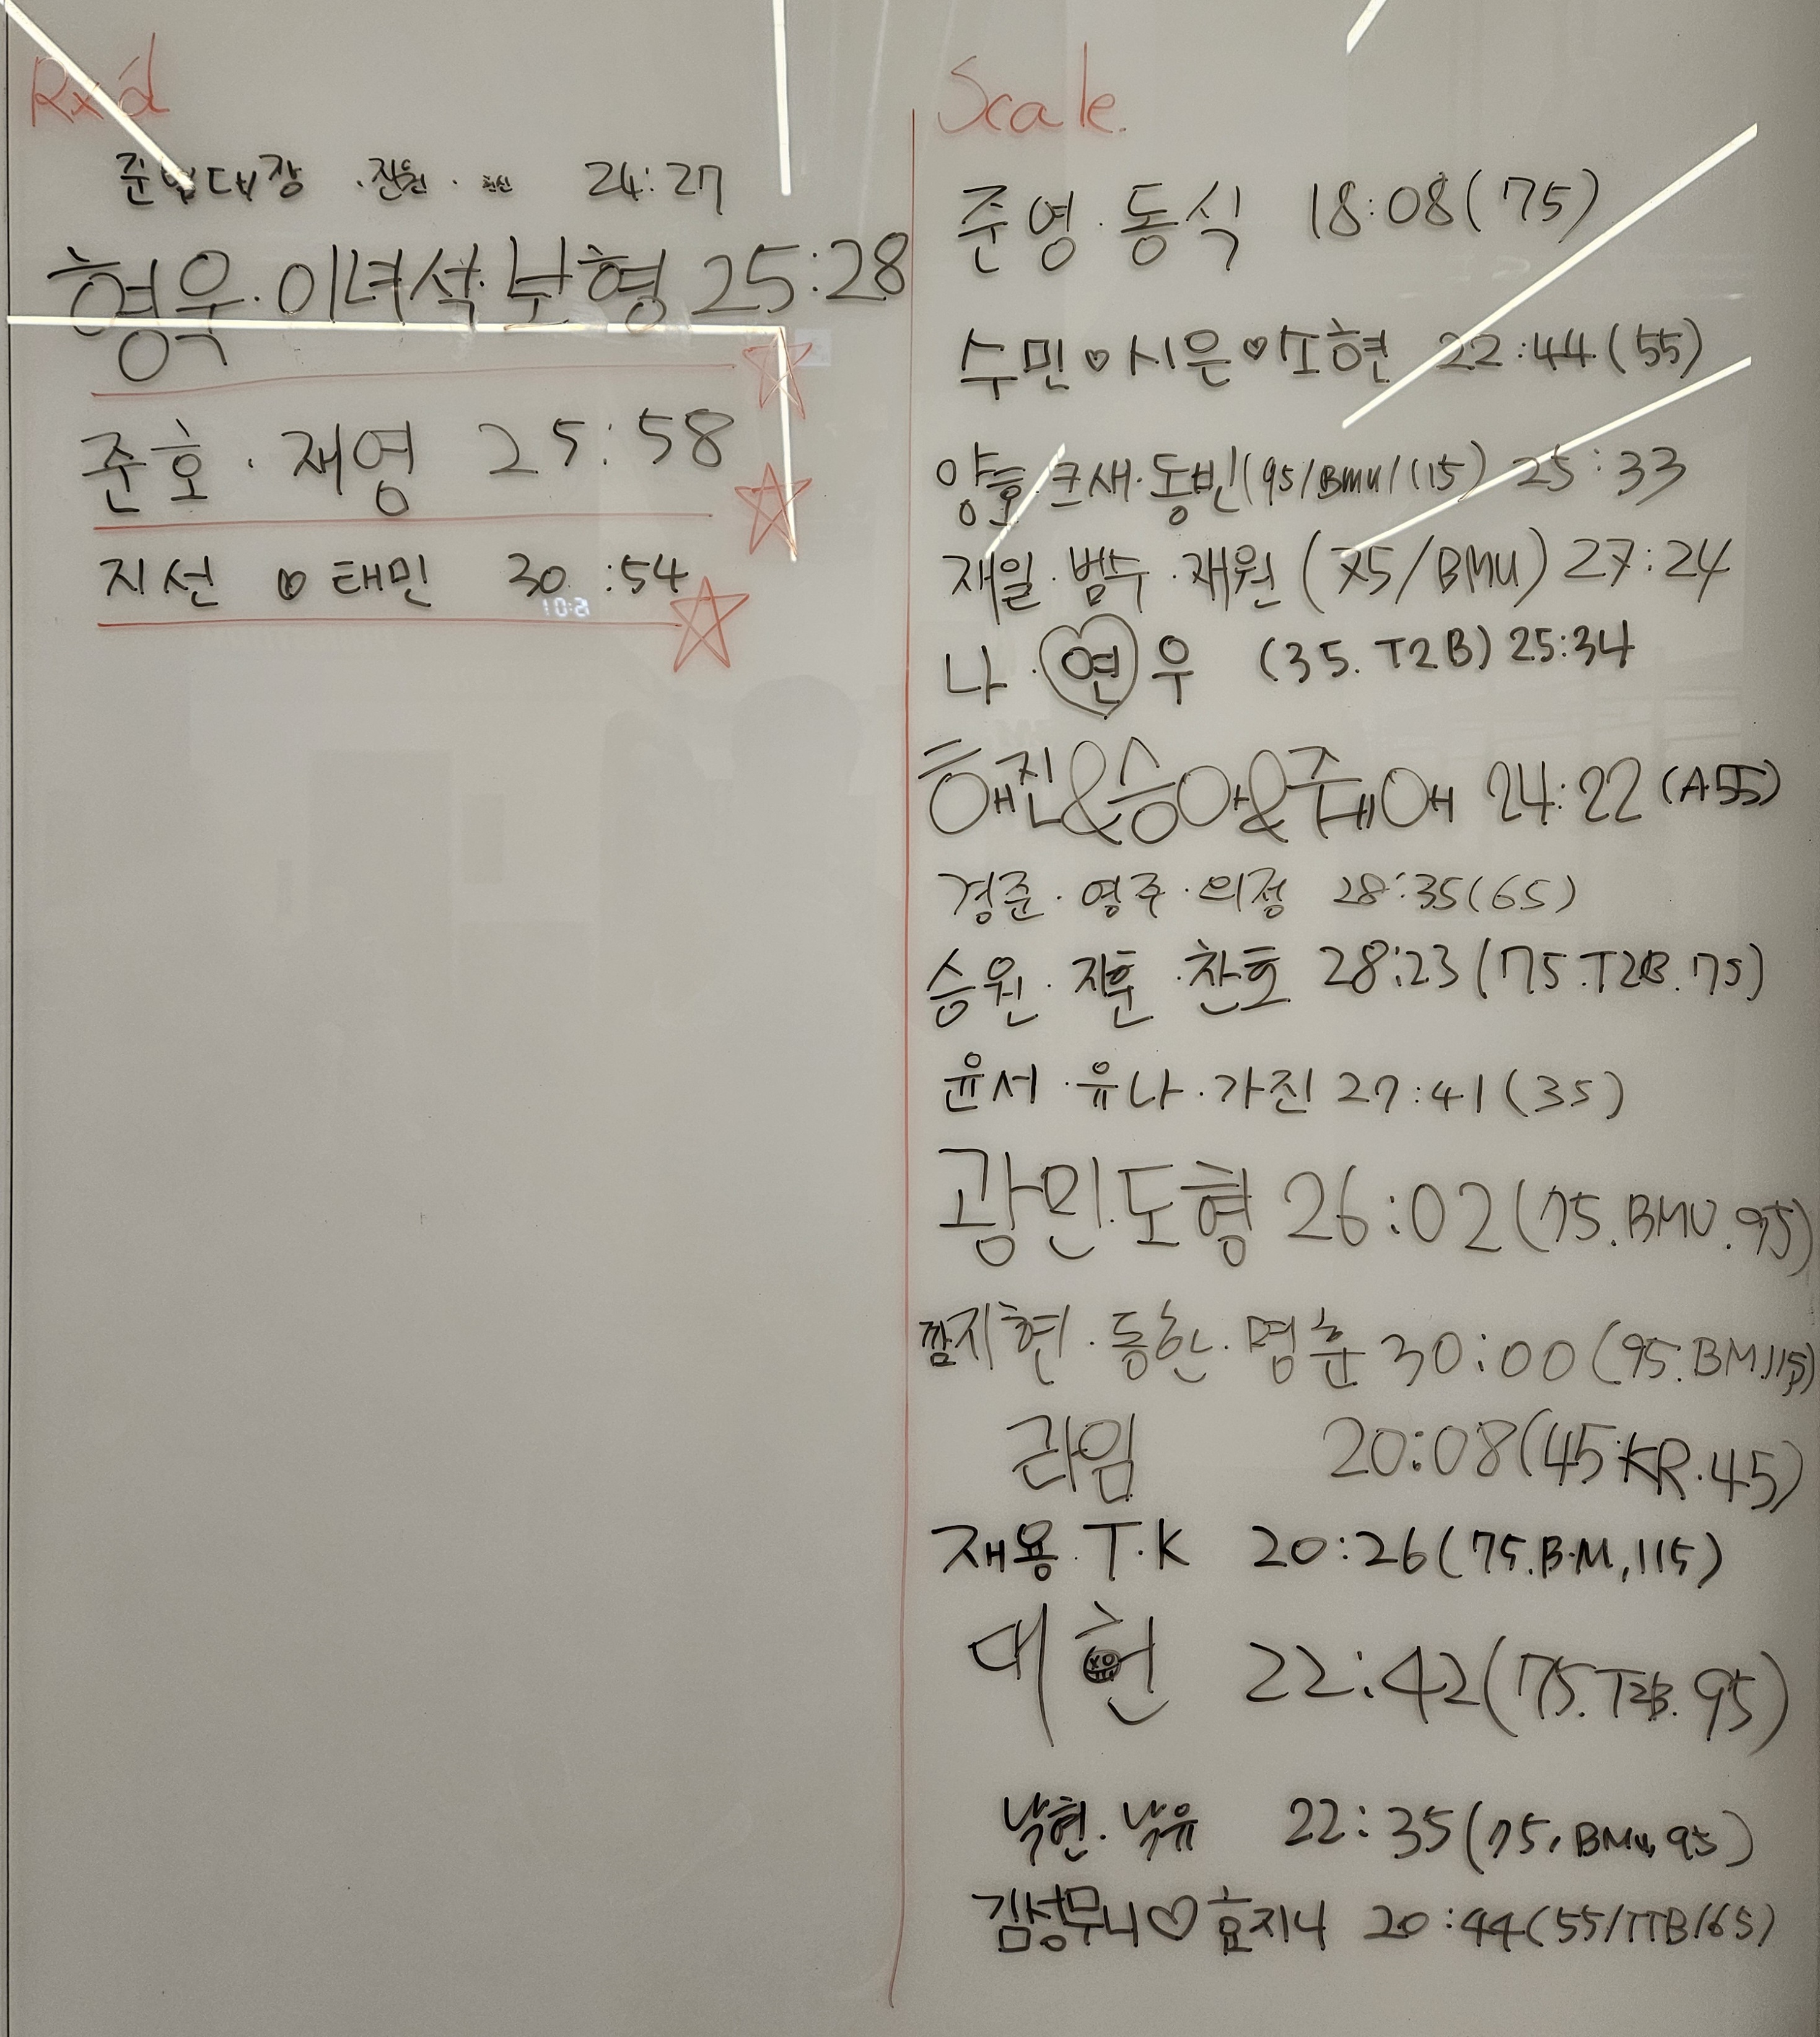 Rx'd
준엽대장 · 진원 · 24:27
형우 · 이녀석 · 보형 25:28
준호 · 재영 25:58
지선 ♡ 태민 30:54
Scale.
준영 · 동식 18:08 (75)
수민♡시은♡소현 22:44 (55)
양호 · 크새 · 동빈 (95/BMU/115) 25:33
재일 · 범수 · 재원 (75/BMU) 27:24
나 · 연우 (35. T2B) 25:34
혜진&승아&주애 24:22 (A55)
경준 · 영주 · 의정 28:35 (65)
승원 · 지훈 · 찬호 28:23 (75.T2B.75)
윤서 · 유나 · 가진 27:41 (35)
광민 · 도형 26:02 (75.BMU.95)
깜지현 · 동한 · 명훈 30:00 (95.BM.115)
라임 20:08 (45.KR.45)
재용 · T.K 20:26 (75.B.M,115)
대헌 22:42 (75.T2B.95)
낙현 · 낙유 22:35 (75, BMU, 95)
김성무니♡효지니 20:44 (55/TTB/65)